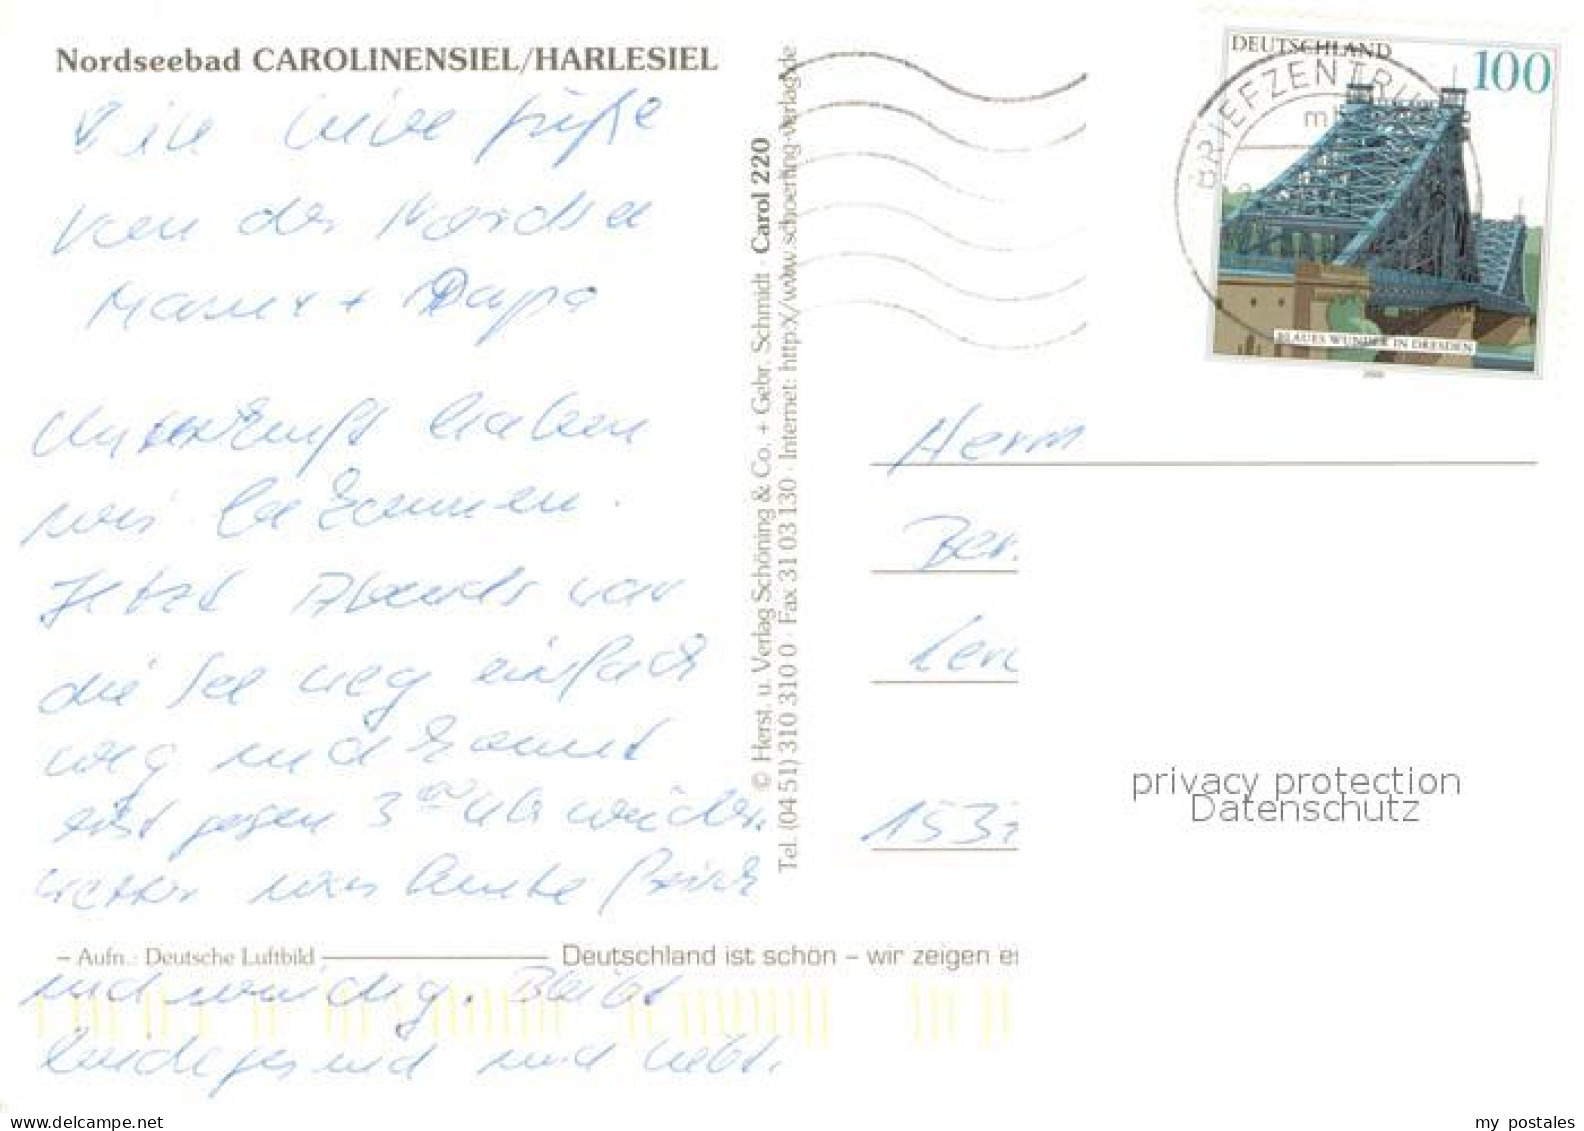 Nordseebad CAROLINENSIEL/HARLESIEL
Viele liebe Grüße
von der Nordsee
Mama + Papa
Unterkunft haben
wir bekommen.
Jetzt Abends war
die See weg einfach
weg und kommt
erst gegen 3 00 Uhr wieder.
Wetter war heute frisch
und windig. Bleibt
beide gesund und liebt.
– Aufn.: Deutsche Luftbild
Deutschland ist schön – wir zeigen es
© Herst. u. Verlag Schöning & Co. + Gebr. Schmidt · Carol 220
Tel. (04 51) 310 310 0 · Fax 31 03 130 · Internet: http:X/www.schoening-verlag.de
DEUTSCHLAND
100
BRIEFZENTRUM
BLAUES WUNDER IN DRESDEN
2000
Herrn
Ber
153
privacy protection
Datenschutz
www.delcampe.net
my postales